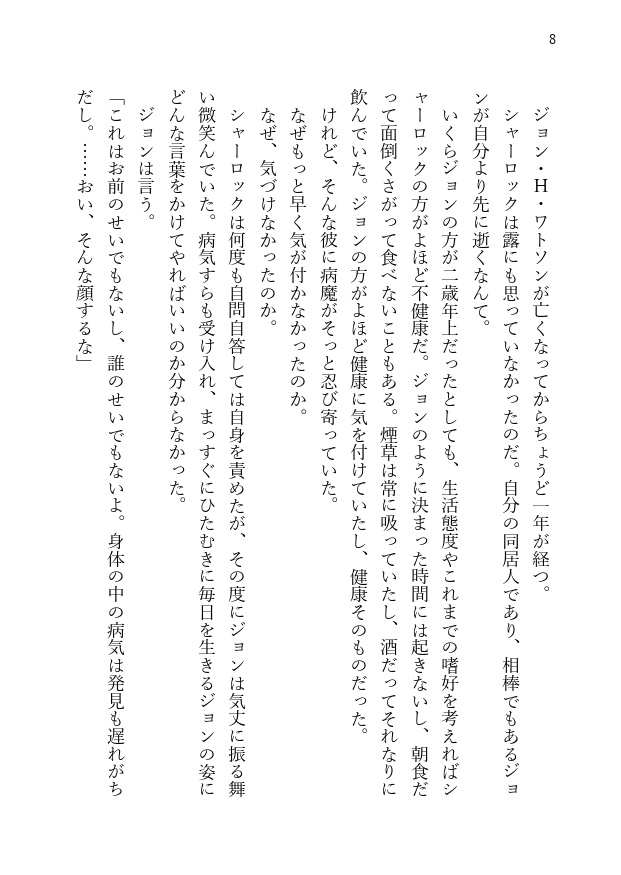 8
ジョン・H・ワトソンが亡くなってからちょうど一年が経つ。
シャーロックは露にも思っていなかったのだ。自分の同居人であり、相棒でもあるジョ
ンが自分より先に逝くなんて。
いくらジョンの方が二歳年上だったとしても、生活態度やこれまでの嗜好を考えればシ
ャーロックの方がよほど不健康だ。ジョンのように決まった時間には起きないし、朝食だ
って面倒くさがって食べないこともある。煙草は常に吸っていたし、酒だってそれなりに
飲んでいた。ジョンの方がよほど健康に気を付けていたし、健康そのものだった。
けれど、そんな彼に病魔がそっと忍び寄っていた。
なぜもっと早く気が付かなかったのか。
なぜ、気づけなかったのか。
シャーロックは何度も自問自答しては自身を責めたが、その度にジョンは気丈に振る舞
い微笑んでいた。病気すらも受け入れ、まっすぐにひたむきに毎日を生きるジョンの姿に
どんな言葉をかけてやればいいのか分からなかった。
ジョンは言う。
「これはお前のせいでもないし、誰のせいでもないよ。身体の中の病気は発見も遅れがち
だし。……おい、そんな顔するな」